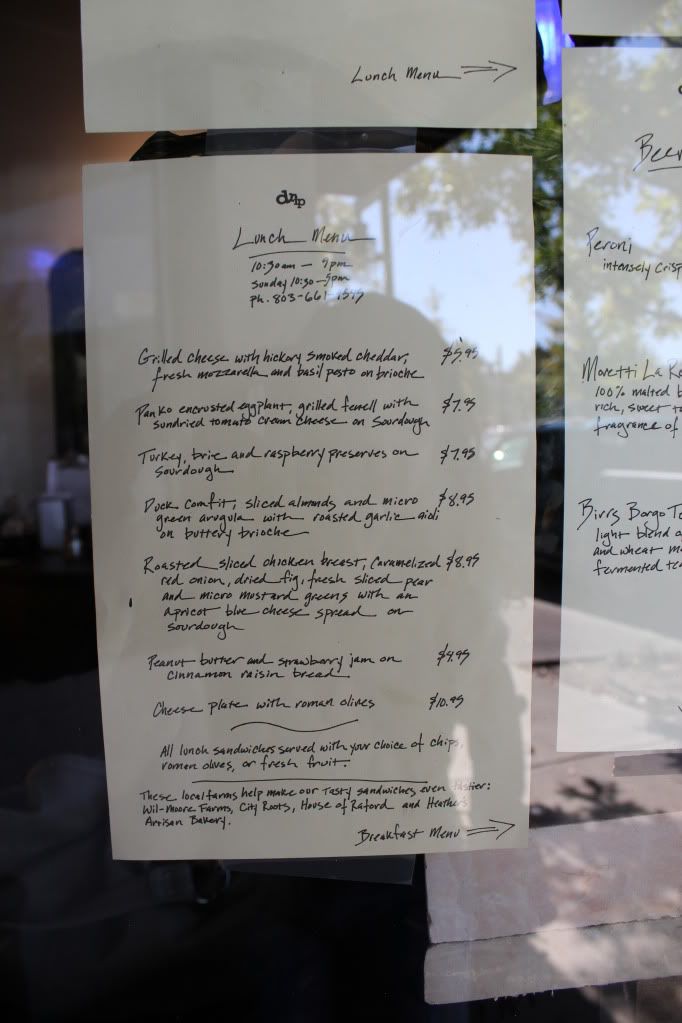 Lunch Menu
drip
Lunch Menu
10:30am - 9pm
Sunday 10:30-5pm
ph. 803-661-1545
Grilled cheese with hickory smoked cheddar, $5.95
fresh mozzarella and basil pesto on brioche
Panko encrusted eggplant, grilled fenell with $7.95
sundried tomato cream cheese on sourdough
Turkey, brie and raspberry preserves on $7.95
sourdough
Duck Comfit, sliced almonds and micro $8.95
green arugula with roasted garlic aioli
on buttery brioche
Roasted sliced chicken breast, caramelized $8.95
red onion, dried fig, fresh sliced pear
and micro mustard greens with an
apricot blue cheese spread on
sourdough
Peanut butter and strawberry jam on $4.95
cinnamon raisin bread
Cheese plate with roman olives $10.95
All lunch sandwiches served with your choice of chips,
roman olives, or fresh fruit.
These local farms help make our tasty sandwiches even tastier:
Wil-Moore Farms, City Roots, House of Raford and Heather's
Artisan Bakery.
Breakfast Menu
Beer
Peroni
intensely crisp
Moretti La
100% malted
rich, sweet
fragrance of
Birra Borgo
light blend
and wheat
fermented